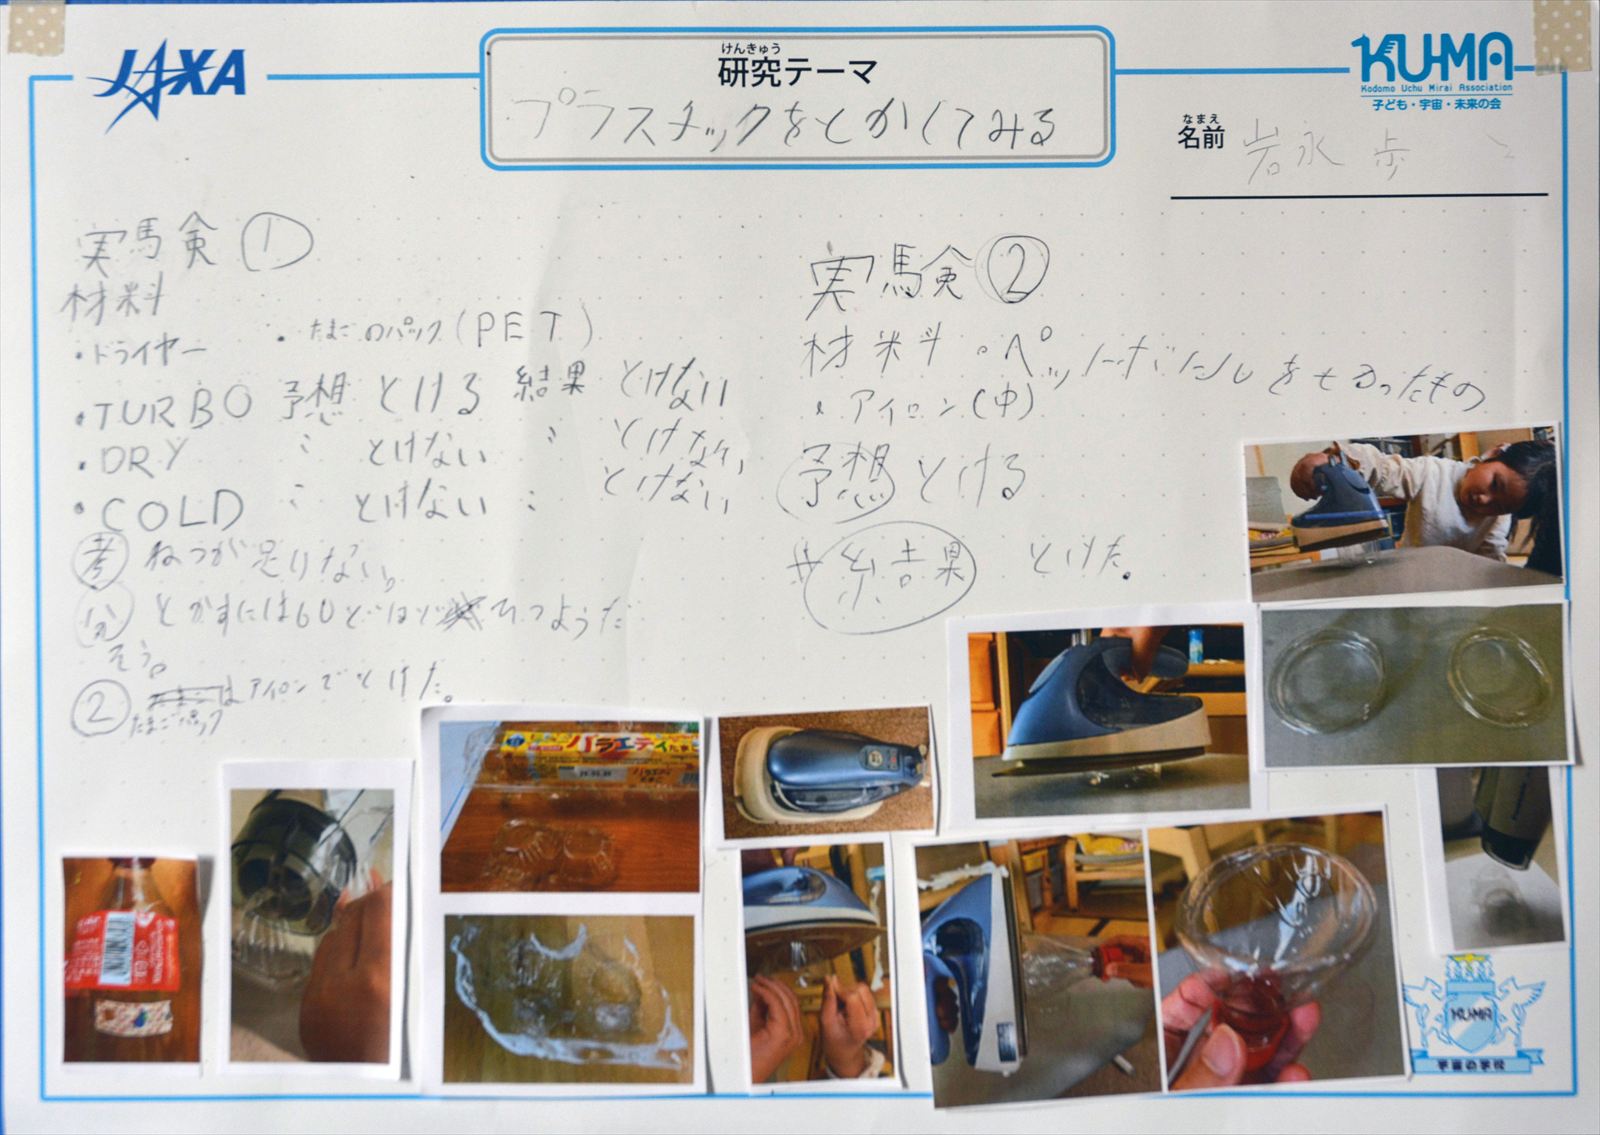 JAXA
けんきゅう
研究テーマ
プラスチックをとかしてみる
KU-MA
Kodomo Uchu Mirai Association
子ども・宇宙・未来の会
なまえ
名前 岩永 歩
実験①
材料
・ドライヤー ・たまごのパック(PET)
・TURBO 予想 とける 結果 とけない
・DRY 〃 とけない 〃 とけない
・COLD 〃 とけない 〃 とけない
考 ねつが足りない。
分 とかすには60どほどひつようだ
そう。
② たまごパックはアイロンでとけた。
実験②
材料 ・ペットボトルをせつったもの
・アイロン(中)
予想 とける
結果 とけた。
バラエティ
たまご
KU-MA
宇宙の学校